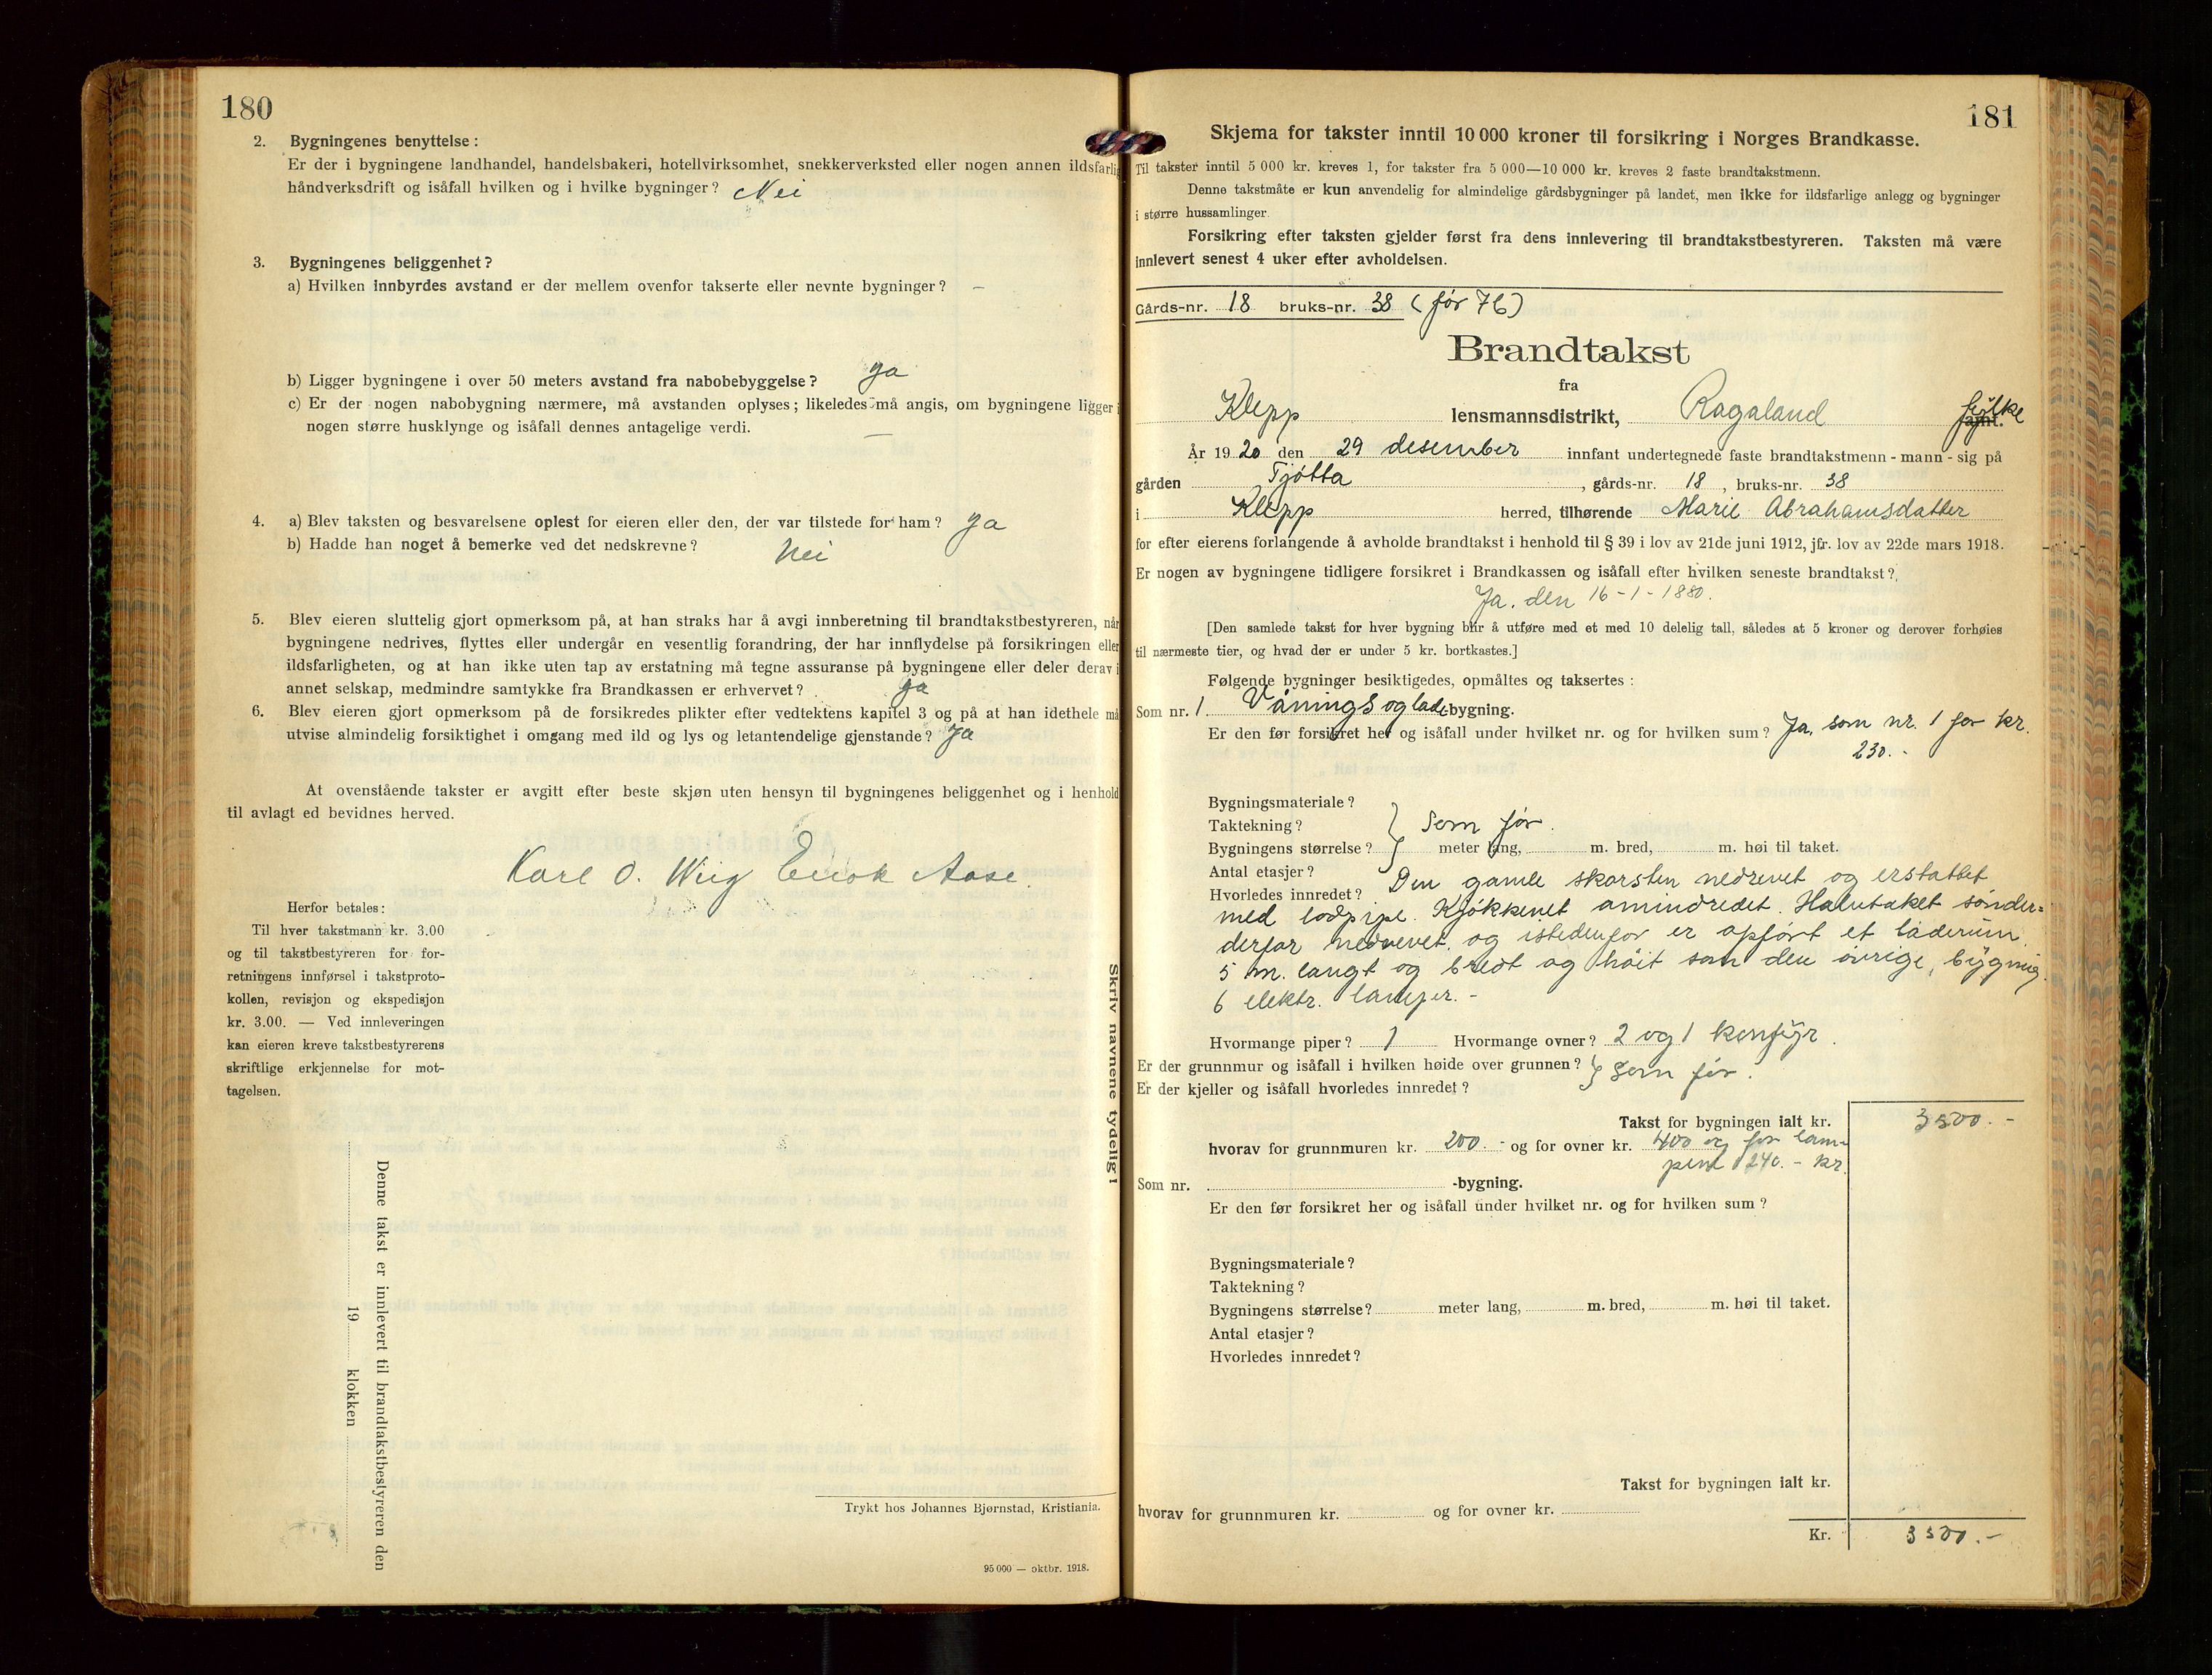 180
2. Bygningenes benyttelse:
Er der i bygningene landhandel, handelsbakeri, hotellvirksomhet, snekkerverksted eller nogen annen ildsfarlig
håndverksdrift og isåfall hvilken og i hvilke bygninger? Nei
3. Bygningenes beliggenhet?
a) Hvilken innbyrdes avstand er der mellem ovenfor takserte eller nevnte bygninger? –
b) Ligger bygningene i over 50 meters avstand fra nabobebyggelse? Ja
c) Er der nogen nabobygning nærmere, må avstanden oplyses; likeledes må angis, om bygningene ligger i
nogen større husklynge og isåfall dennes antagelige verdi. —
4. a) Blev taksten og besvarelsene oplest for eieren eller den, der var tilstede for ham? Ja
b) Hadde han noget å bemerke ved det nedskrevne? Nei
5. Blev eieren sluttelig gjort opmerksom på, at han straks har å avgi innberetning til brandtakstbestyreren, når
bygningene nedrives, flyttes eller undergår en vesentlig forandring, der har innflydelse på forsikringen eller
ildsfarligheten, og at han ikke uten tap av erstatning må tegne assuranse på bygningene eller deler derav i
annet selskap, medmindre samtykke fra Brandkassen er erhvervet? Ja
6. Blev eieren gjort opmerksom på de forsikredes plikter efter vedtektens kapitel 3 og på at han idethele må
utvise almindelig forsiktighet i omgang med ild og lys og letantendelige gjenstande? Ja
At ovenstående takster er avgitt efter beste skjøn uten hensyn til bygningenes beliggenhet og i henhold
til avlagt ed bevidnes herved.
Karl O. Wiig Enok Aase.
Herfor betales:
Til hver takstmann kr. 3.00
og til takstbestyreren for for-
retningens innførsel i takstproto-
kollen, revisjon og ekspedisjon
kr. 3.00. — Ved innleveringen
kan eieren kreve takstbestyrerens
skriftlige erkjennelse for mot-
tagelsen.
Denne takst er innlevert til brandtakstbestyreren den
19 klokken
Skriv navnene tydelig!
Trykt hos Johannes Bjørnstad, Kristiania.
95 000 — oktbr. 1918.
181
Skjema for takster inntil 10 000 kroner til forsikring i Norges Brandkasse.
Til takster inntil 5 000 kr. kreves 1, for takster fra 5 000—10 000 kr. kreves 2 faste brandtakstmenn.
Denne takstmåte er kun anvendelig for almindelige gårdsbygninger på landet, men ikke for ildsfarlige anlegg og bygninger
i større hussamlinger.
Forsikring efter taksten gjelder først fra dens innlevering til brandtakstbestyreren. Taksten må være
innlevert senest 4 uker efter avholdelsen.
Gårds-nr. 18 bruks-nr. 38 (før 76)
Brandtakst
fra
Klepp lensmannsdistrikt, Rogaland fylke amt.
År 1920 den 29 desember innfant undertegnede faste brandtakstmenn - mann - sig på
gården Tjøtta, gårds-nr. 18, bruks-nr. 38
i Klepp herred, tilhørende Marie Abrahamsdatter
for efter eierens forlangende å avholde brandtakst i henhold til § 39 i lov av 21de juni 1912, jfr. lov av 22de mars 1918.
Er nogen av bygningene tidligere forsikret i Brandkassen og isåfall efter hvilken seneste brandtakst?
Ja. den 16-1-1880.
[Den samlede takst for hver bygning blir å utføre med et med 10 delelig tall, således at 5 kroner og derover forhøies
til nærmeste tier, og hvad der er under 5 kr. bortkastes.]
Følgende bygninger besiktigedes, opmåltes og taksertes:
Som nr. 1. Vånings og lade-bygning.
Er den før forsikret her og isåfall under hvilket nr. og for hvilken sum? Ja, som nr. 1 for kr.
230.-
Bygningsmateriale?
Taktekning? } Som før.
Bygningens størrelse? meter lang, m. bred, m. høi til taket.
Antal etasjer?
Hvorledes innredet? Den gamle skorsten nedrevet og erstattet
med lodpipe. Kjøkkenet omindredet. Halvtaket sønder=
derfor nedrevet, og istedenfor er opført et laderum,
5 m. langt og bredt og høit som den øvrige, bygning.
6 elektr. lamper. -
Hvormange piper? 1 Hvormange ovner? 2 og 1 komfyr.
Er der grunnmur og isåfall i hvilken høide over grunnen?
Er der kjeller og isåfall hvorledes innredet? } Som før.
Takst for bygningen ialt kr. 3500.-
hvorav for grunnmuren kr. 200.- og for ovner kr. 400 og for lam-
pene 240.- kr.
Som nr. -bygning.
Er den før forsikret her og isåfall under hvilket nr. og for hvilken sum?
Bygningsmateriale?
Taktekning?
Bygningens størrelse? meter lang, m. bred, m. høi til taket.
Antal etasjer?
Hvorledes innredet?
Takst for bygningen ialt kr.
hvorav for grunnmuren kr. og for ovner kr.
Kr. 3500.-